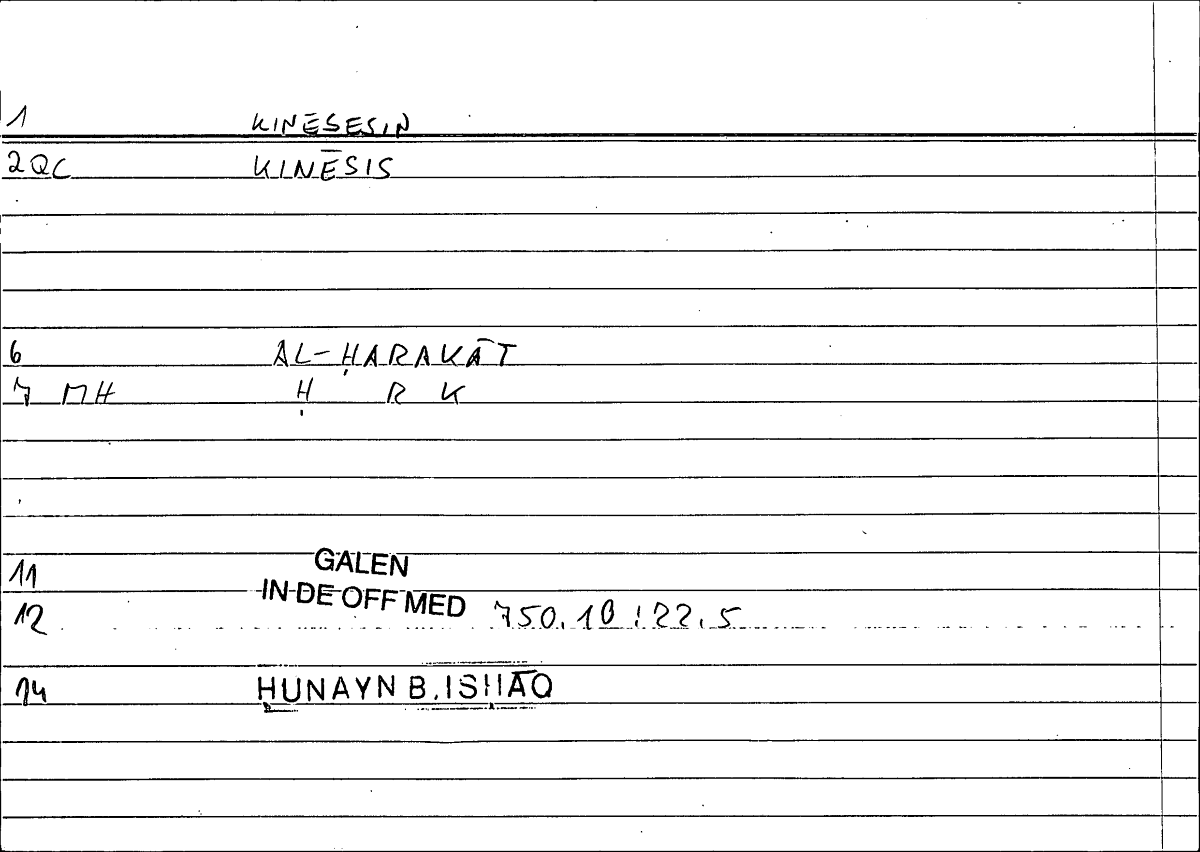 1 KINĒSESIN
2QC KINĒSIS
6 AL-ḤARAKĀT
7 MH Ḥ R K
11 GALEN
IN DE OFF MED
12 750.10:22.5
14 ḤUNAYN B. ISḤĀQ